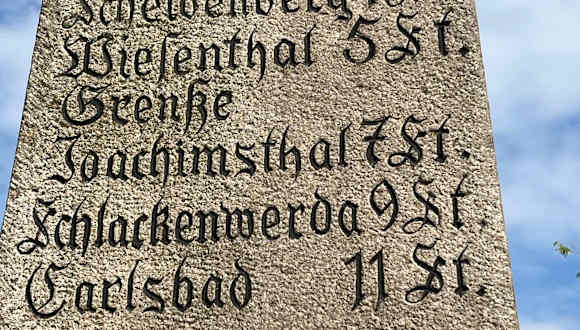 Scheibenberg
Wiesenthal 5 St.
Grenße
Joachimsthal 7 St.
Schlackenwerda 9 St.
Carlsbad 11 St.